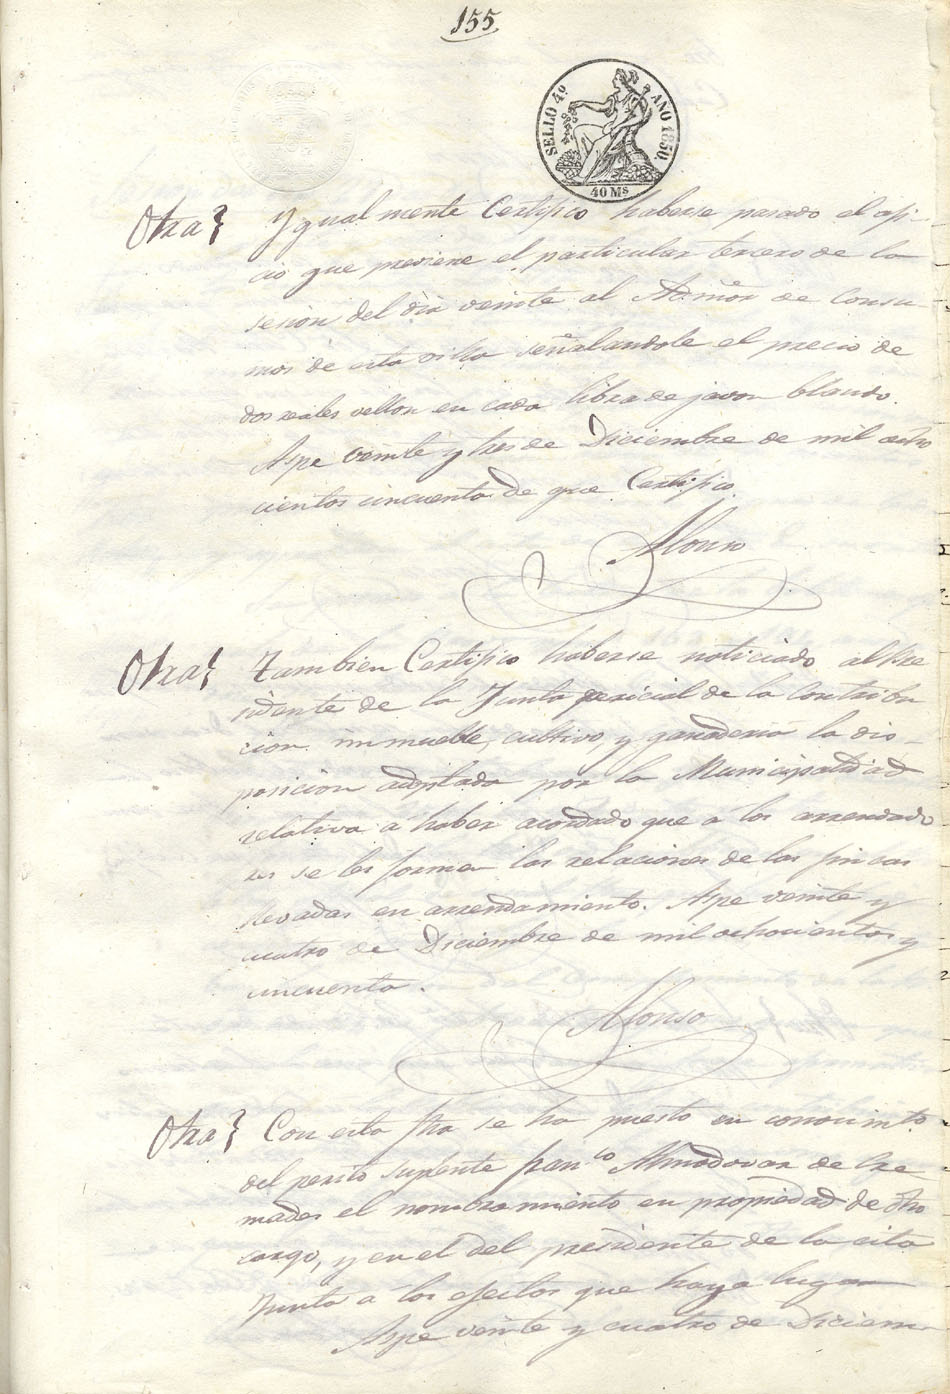 155
SELLO 4º AÑO 1850
40 Ms
Otra} Ygualmente Certifico haberse pasado el ofi-
cio que previene el particular tercero de la
sesion del dia veinte al Admor de Consu
mos de esta villa señalandole el precio de
dos reales vellon en cada libra de javon blando.
Aspe veinte y tres de Diciembre de mil ocho
cientos cincuenta de que Certifico.
Alonso
Otra} Tambien Certifico haberse noticiado al Pre
sidente de la Junta pericial de la Contribu
cion immueble, cultivo, y ganaderia la dis-
posicion adoptada por la Municipalidad
relativa á haber acordado que a los arrendado
res se les formen las relaciones de las fincas
llevadas en arrendamiento. Aspe veinte y
cuatro de Diciembre de mil ochocientos y
cincuenta.
Alonso
Otra} Con esta fha se ha puesto en conocimto
del perito suplente Franco Almodovar de Cre
mades el nombramiento en propiedad de dho
cargo, y en el del presidente de la cita
Junta á los efectos que haya lugar
Aspe veinte y cuatro de Diciem-